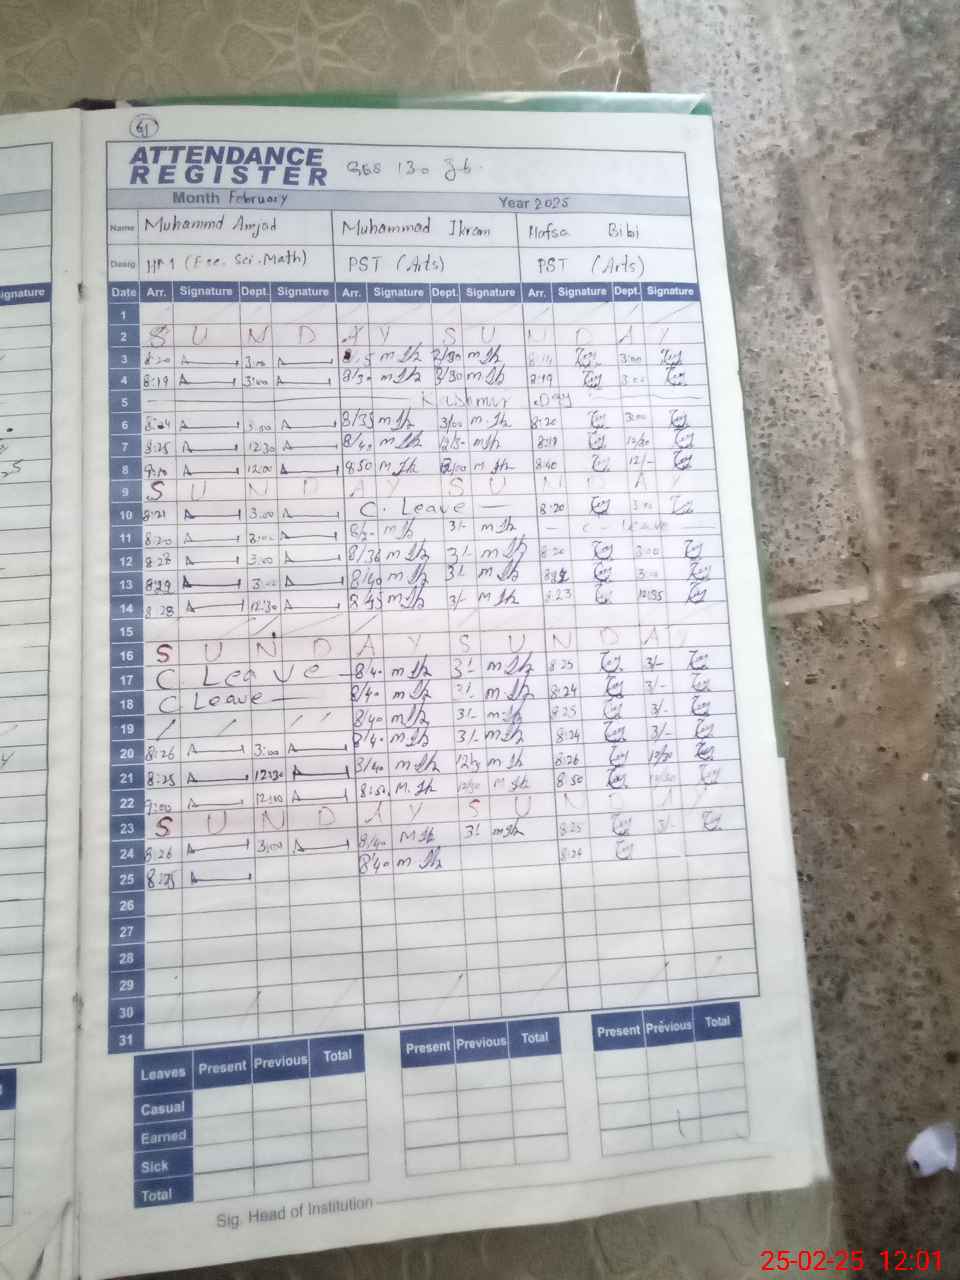 61
ATTENDANCE
REGISTER
GES 130 gb.
Month February Year 2025
Name Muhammd Amjad Muhammad Ikram Hafsa Bibi
Desig (Ele. Sci. Math) PST (Arts) PST (Arts)
ignature Date Arr. Signature Dept. Signature Arr. Signature Dept. Signature Arr. Signature Dept. Signature
1
2 S U N D A Y S U N D A Y
3 8:20 3:00 3:00
4 8:19 3:00 8/30 8/30 8:19 3:00
5 Kashmir Day
6 8:24 3:00 8/35 3/00 8:20 3:00
7 8:25 12:30 8/40 8:19 12/30
8 12:00 850 8:40 12/-
9 S U N D A Y S U N D A Y
10 8:21 3:00 C. Leave 8:20 3:00
11 8:20 3:00 3/- C. Leave
12 8:28 3:00 8/38 3/- 8:20 3:00
13 8:29 3:00 8/40 3/- 3:00
14 8:28 12:30 8/45 3/- 8:23 12:35
15
16 S U N D A Y S U N D A Y
17 C. Leave 8/40 3/- 8:25 3/-
18 C Leave 8/40 3/- 8:24 3/-
19 8/40 3/- 8:25 3/-
20 8:26 3:00 8/40 3/- 8:24 3/-
21 8:25 12:30 8/40 8:26 12/30
22 9:00 12:00 8:50 12/30 8:50 12:30
23 S U N D A Y S U N D A Y
24 8:26 3:00 8/40 3/- 8:25 3/-
25 8:25 8/40 8:24
26
27
28
29
30
31
Leaves Present Previous Total Present Previous Total Present Previous Total
Casual
Earned
Sick
Total
Sig. Head of Institution
25-02-25 12:01